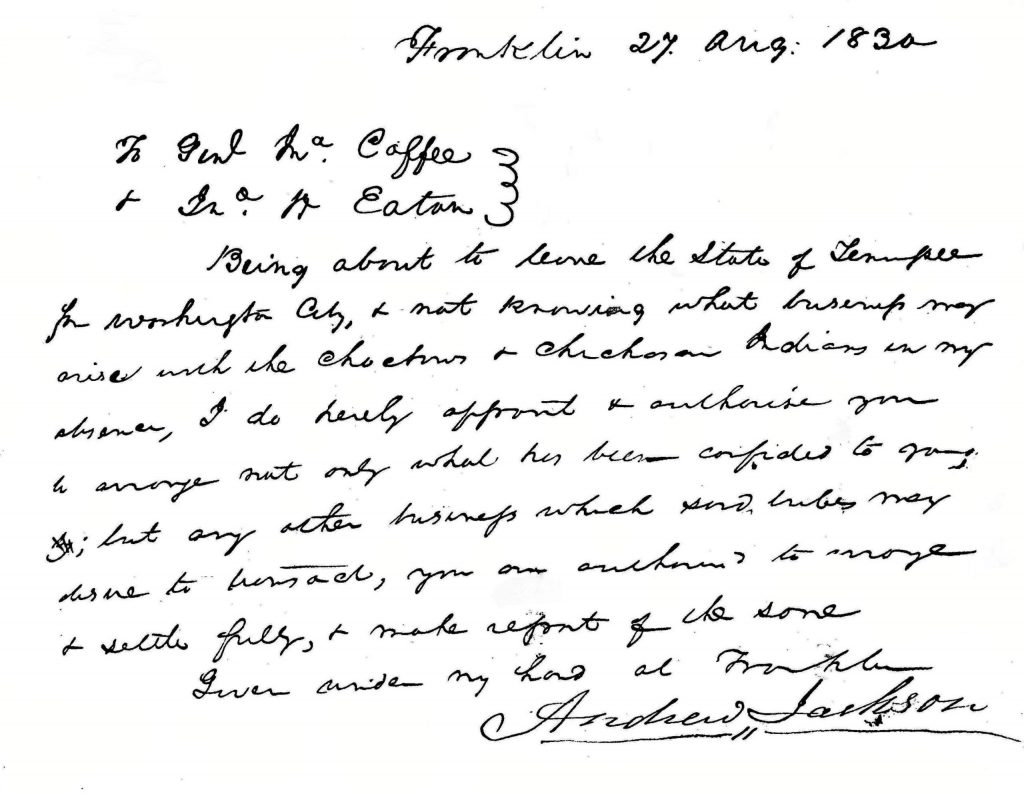 Franklin 27. Aug: 1830
To Genl Jna. Coffee
& Jna. H Eaton
Being about to leave the State of Tennessee
for Washington City, & not knowing what business may
arise with the Choctaws & Chickasaw Indians in my
absence, I do hereby appoint & authorise you
to arrange not only what has been confided to you,
; but any other business which said tribes may
desire to transact, you are authorised to arrange
& settle fully, & make report of the same
Given under my hand at Franklin
Andrew Jackson